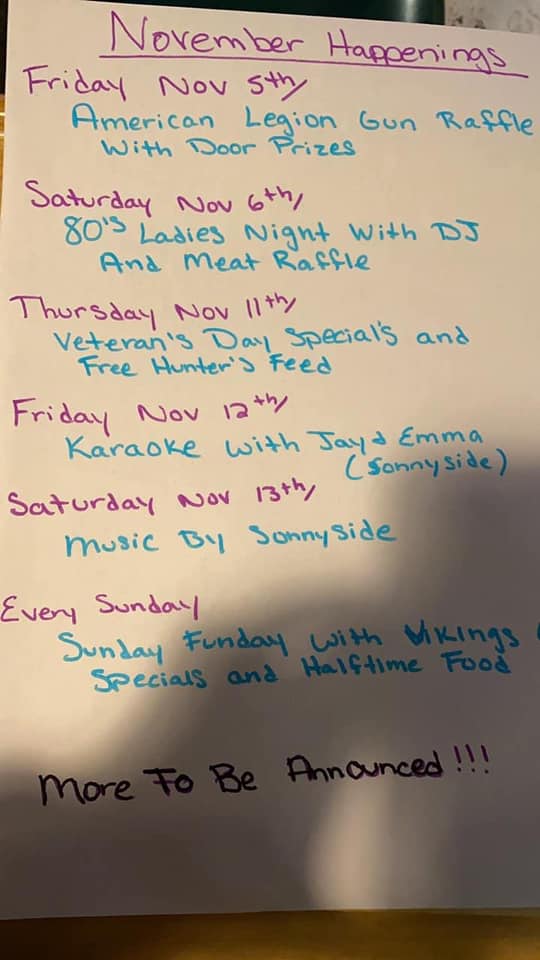 November Happenings
Friday Nov 5th
American Legion Gun Raffle
With Door Prizes
Saturday Nov 6th
80's Ladies Night With DJ
And Meat Raffle
Thursday Nov 11th
Veteran's Day Special's and
Free Hunter's Feed
Friday Nov 12th
Karaoke with Jay & Emma
(Sonnyside)
Saturday Nov 13th
Music By Sonnyside
Every Sunday
Sunday Funday with Vikings
Specials and Halftime Food
More To Be Announced!!!